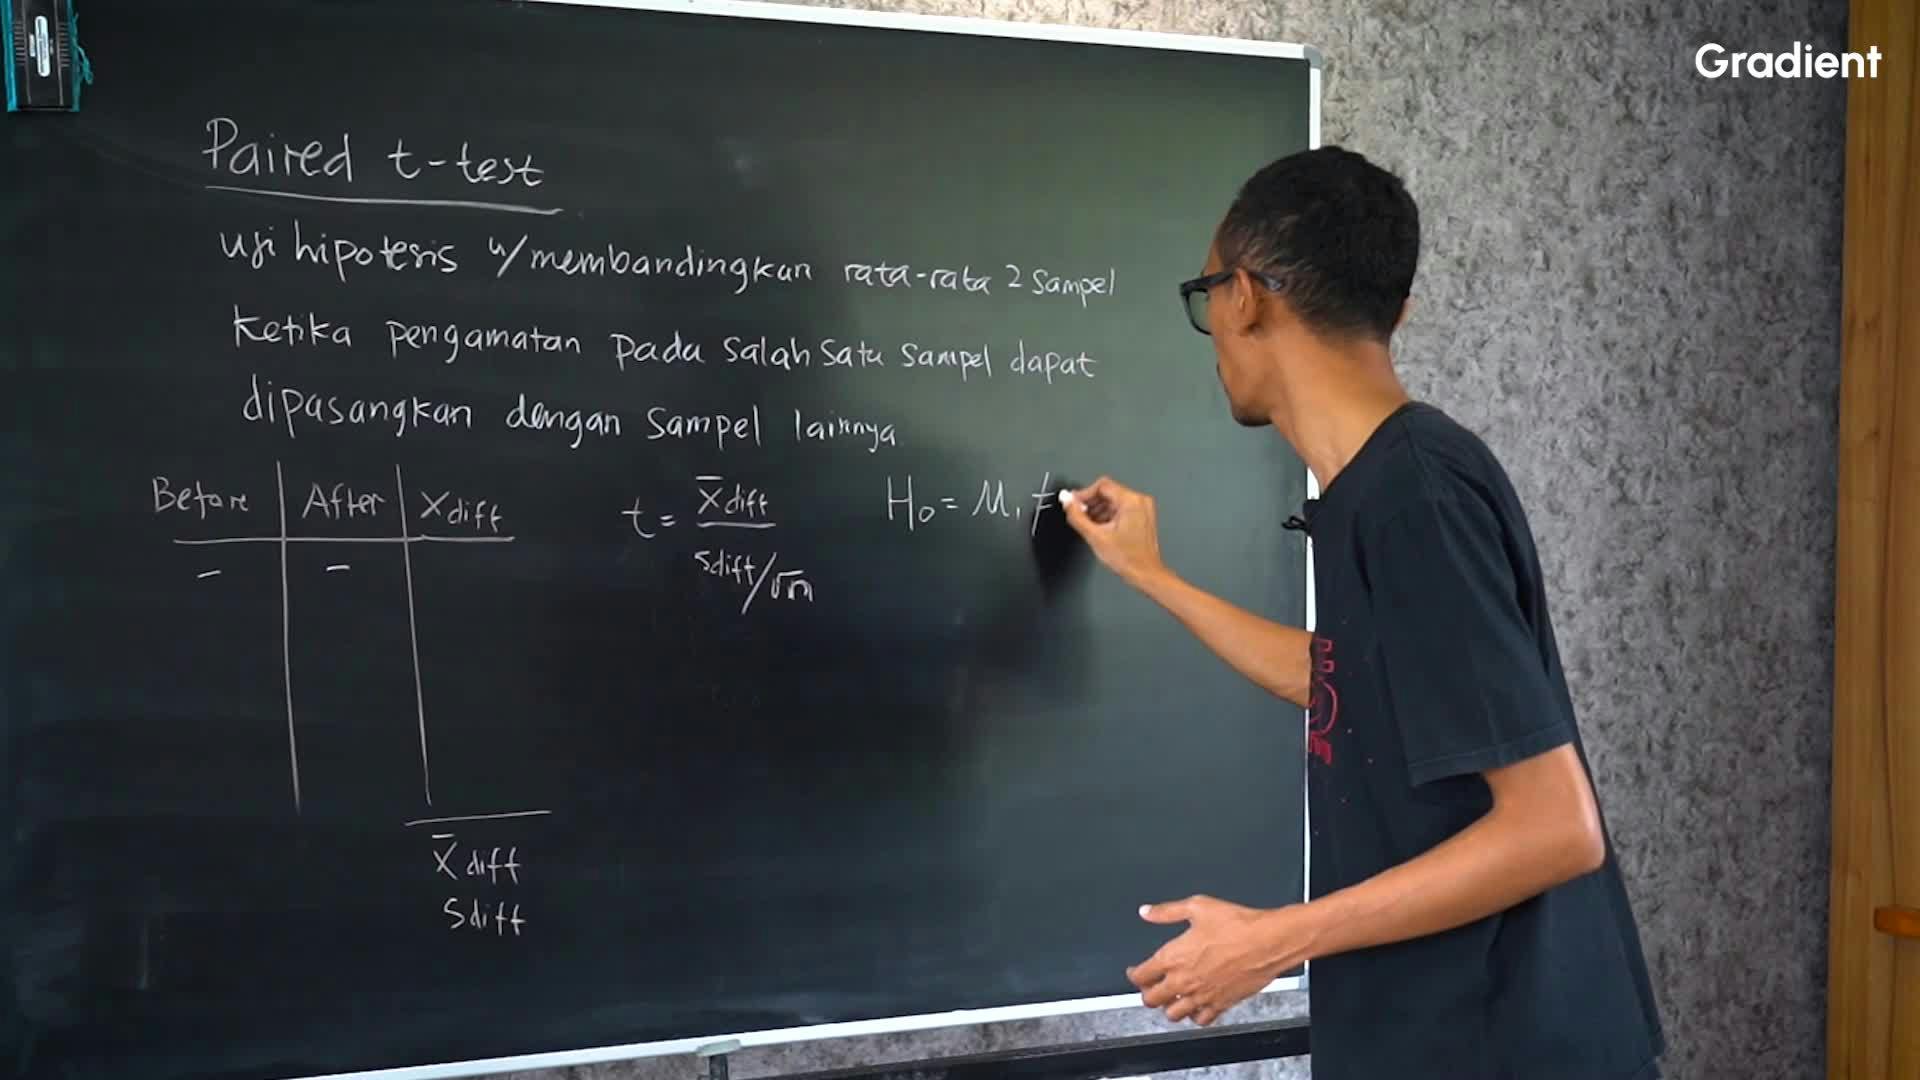 Gradient
Paired t-test
uji hipotesis u/membandingkan rata-rata 2 sampel
ketika pengamatan pada salah satu sampel dapat
dipasangkan dengan sampel lainnya.
Before After Xdiff
- -
x̄ diff
Sdiff
t = x̄ diff / Sdiff/√n
H₀ = M₁ ≠